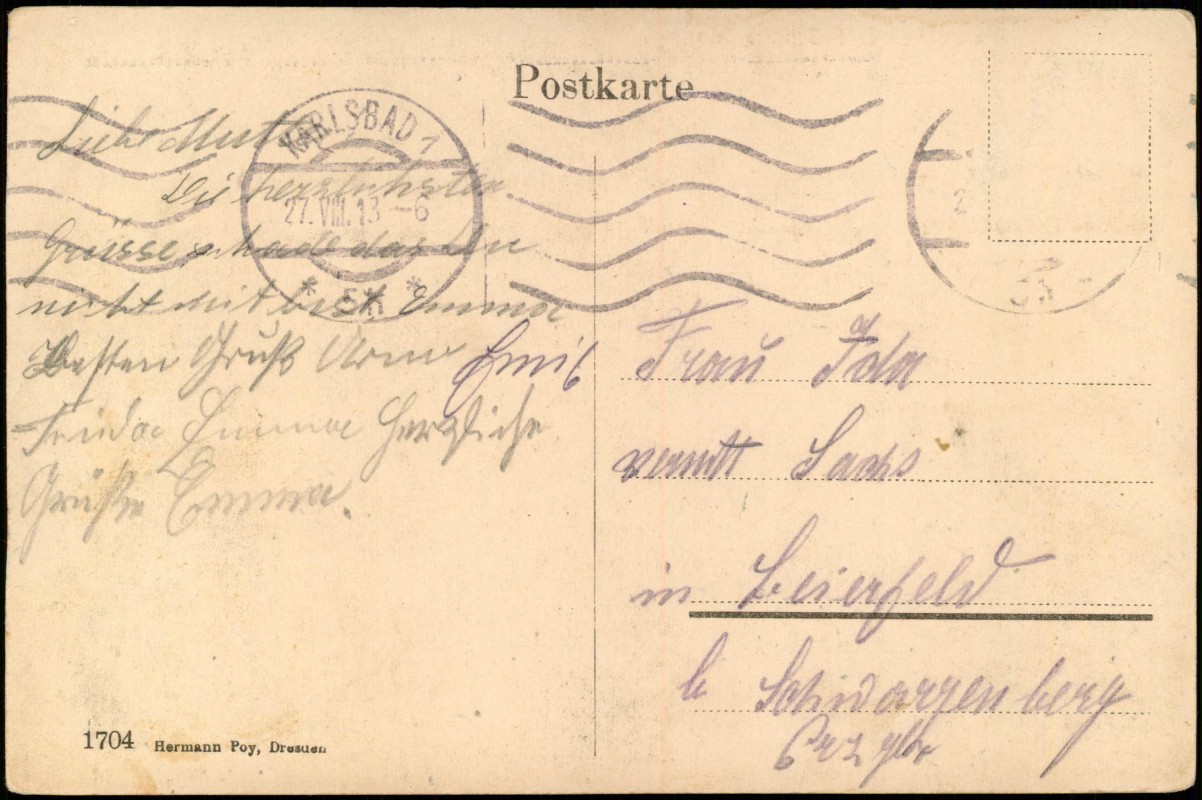 Postkarte
KARLSBAD 1
27. VIII. 13 - 6
* 5K *
Liebe Mutter
Die herzlichsten
Grüsse schade das Du
nicht mit bist, Emma
Besten Gruß Arno Emil
Frieda Emma Herzliche
Grüße Emma.
Frau Ida
verwitt Sachs
in Beierfeld
b Schwarzenberg
Erzgbr
1704 Hermann Poy, Dresden